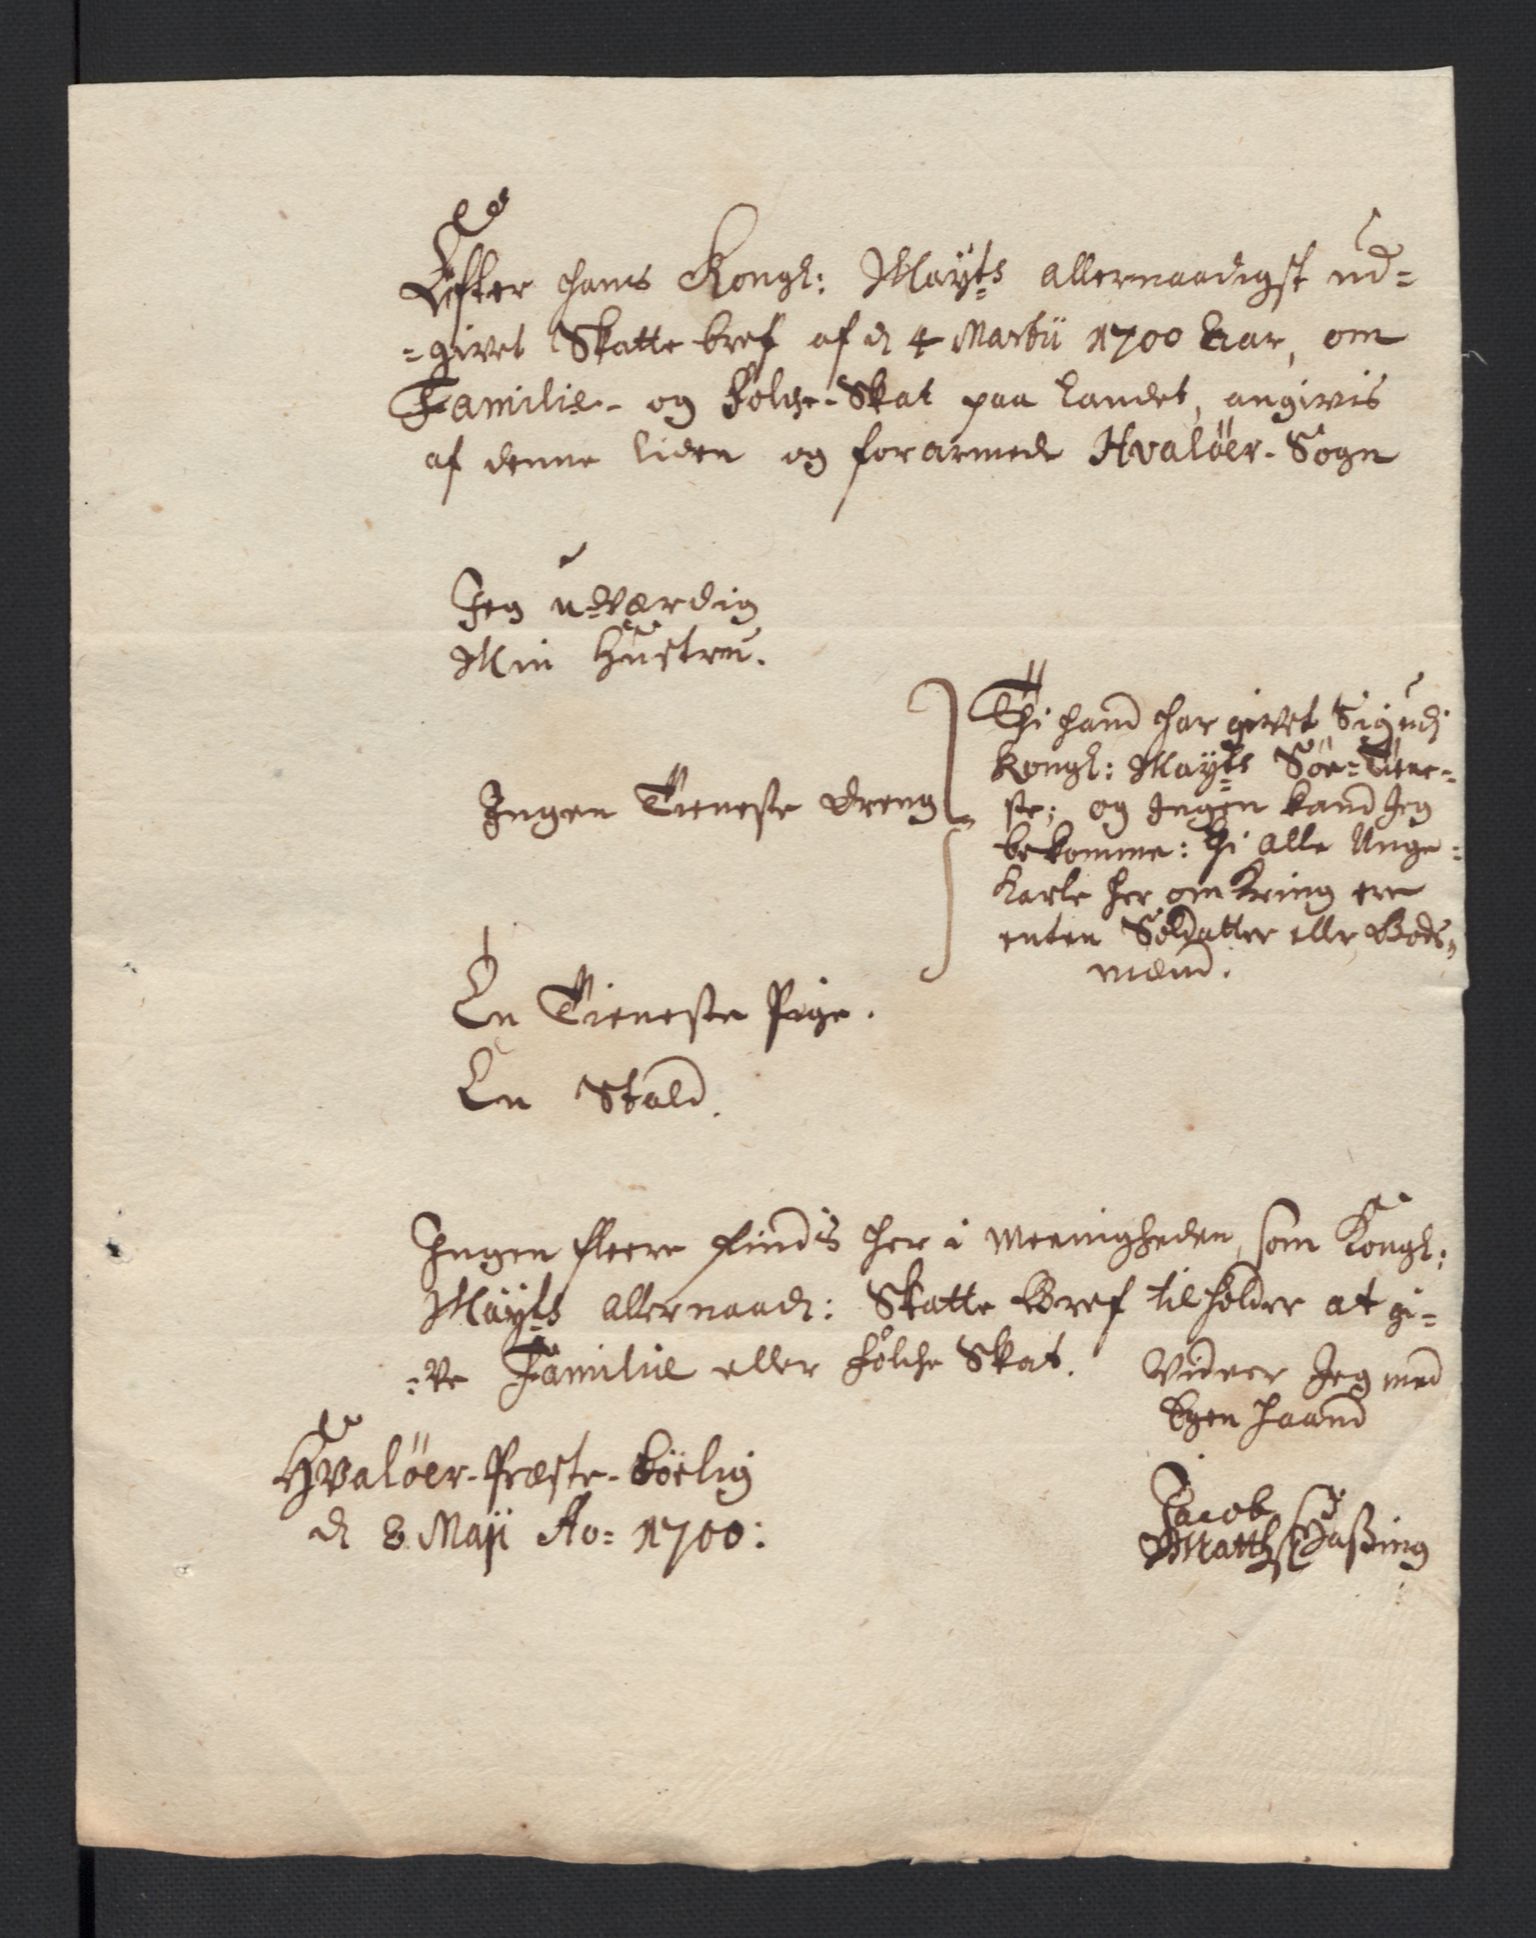 Efter hans Kongl: Mayts allernaadigst ud=
=givet Skatte bref af d 4 Martii 1700 Aar, om
Familie- og Folche-Skat paa Landet, angivis
af denne liden og forarmede Hvaløer-Sogn
Jeg uværdig
Min Hustru.
Ingen Tieneste dreng
Thi hand har givet Sig udj
Kongl: Mayts Søe-Tiene-
ste; og Ingen kand Jeg
bekomme: thi alle Unge=
karle her omkring ere
enten Soldatter eller Bods,,
mænd.
En Tieneste Pige.
En Stald.
Ingen fleere findis her i Meenigheden, som Kongl:
Mayts allernaad: Skatte Bref tilholder at gi=
=ve Familie eller Folche Skat.
Vidner Jeg med
Egen haand
Hvaløer-Præste-Bøelig
d 8 Maji Ao= 1700:
Jacob
Matthsß Hassing